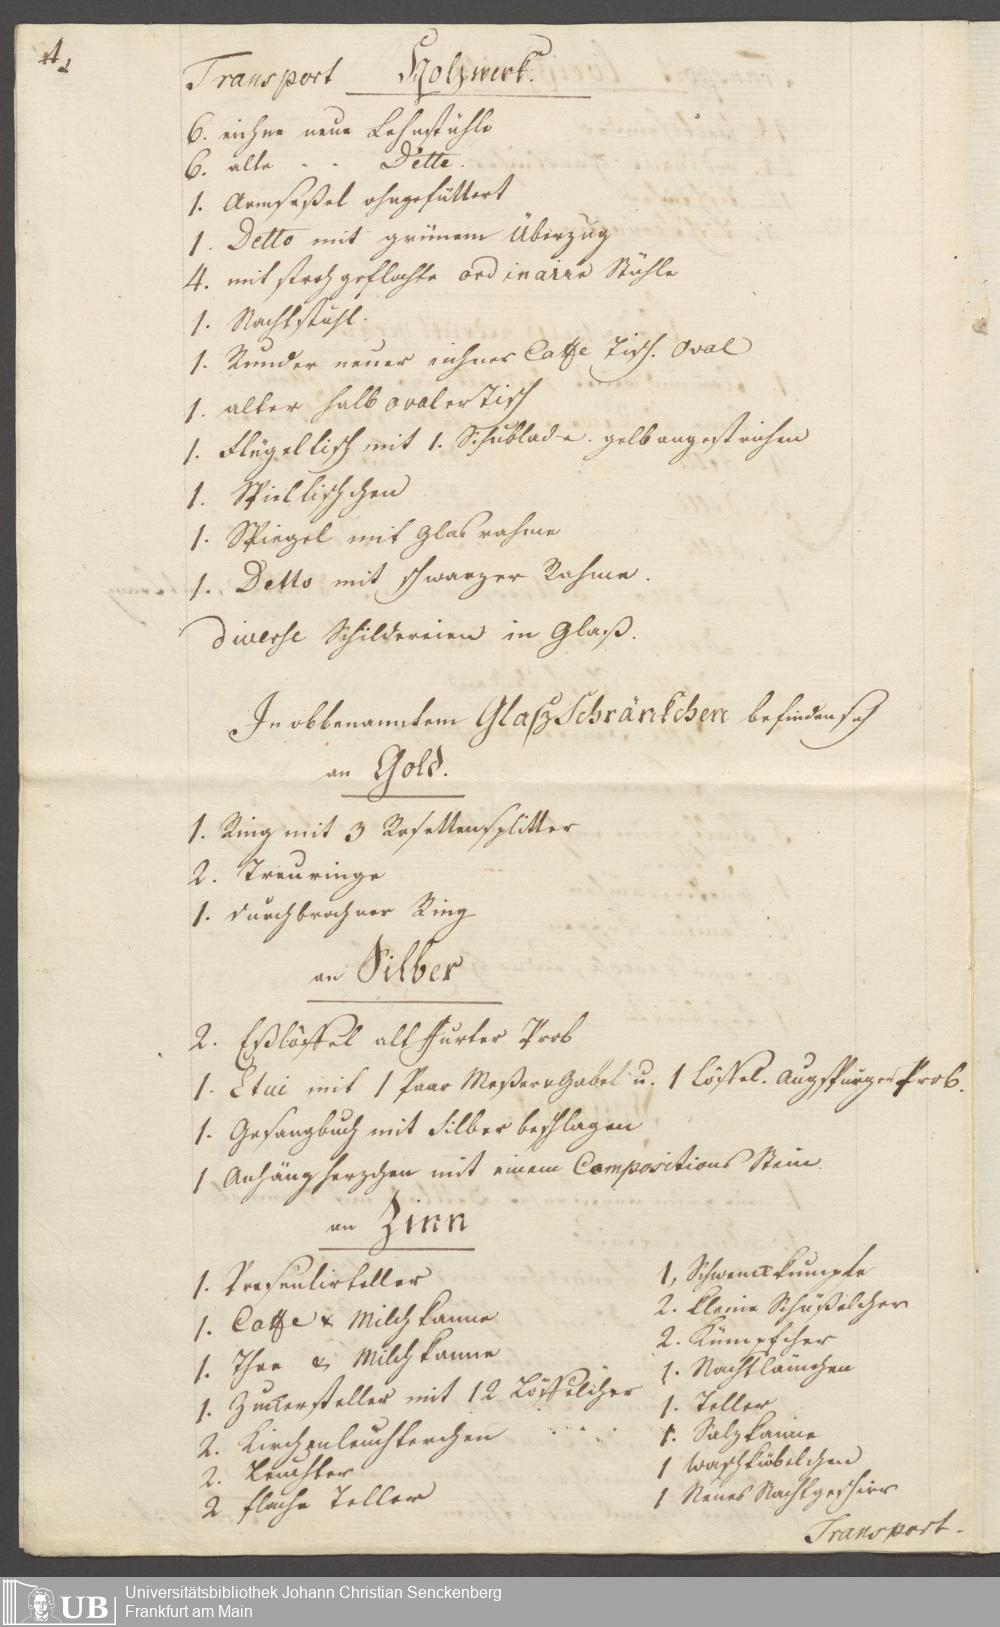 4.
Transport Holzwerk.
6. eichne neue Lehnstühle
6. alte - - Dette.
1. Armseßel ohngefüttert
1. Detto mit grünem Überzug
4. mit stroh geflochte ordinaire Stühle
1. Nachtstuhl.
1. Runder neuer eichner Caffe Tisch. Oval
1. alter halb ovaler Tisch
1. Flügeltisch mit 1. Schublade. gelb angestrichen
1. Spieltischchen
1. Spiegel mit Glas rahme
1. Detto mit schwarzer Rahme.
diverse Schildereien in Glaß.
In obbenanntem Glaßschränkchen befinden sich
an Gold.
1. Ring mit 3 Rosettensplitter
2. Treuringe
1. durchbrochner Ring
an Silber
2. Eßlöffel alt ffurter Prob
1. Etui mit 1 Paar Meßer u Gabel u. 1 Löffel. Augspurger Prob.
1. Gesangbuch mit Silber beschlagen
1 Anhängherzchen mit einem Compositions Stein.
an Zinn
1. Presentirteller
1. Caffe & Milch kanne
1. Thee & Milch kanne
1. Zuckersteller mit 12 Löffelcher
2. Kirchenleuchterchen
2. Leuchter
2 flache Teller
1, Schwenckkumpfe
2. kleine Schüßelcher
2. Kümpfcher
1. Nachtlämchen
1. Teller
1. Salzkanne
1 Waschkübelchen
1 Neues Nachtgeschirr
Transport.
UB
Universitätsbibliothek Johann Christian Senckenberg
Frankfurt am Main